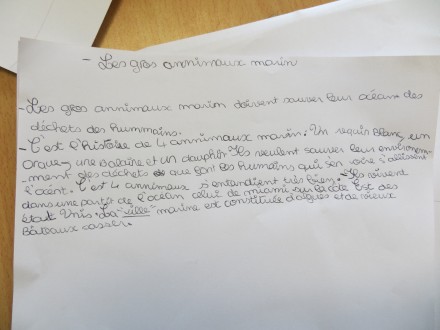 - Les gros annimaux marin
- Les gros annimaux marim doivent sauver leur océan des
déchets des hummains.
- C'est l'histoire de 4 annimaux marin. Un requis blanc, un
orque, une balaine et un dauphin. Ils veulent sauver leur environem-
-ment des déchets que font les humains qui s'en
l'océant. C'est 4 annimaux s'entandient très bien. - Ils vivent
dans une partit de l'océan celui de miami sur la côte Est des
état Unis. La "ville" marine est constituée d'algues et de vieux
Bâteaux casser.